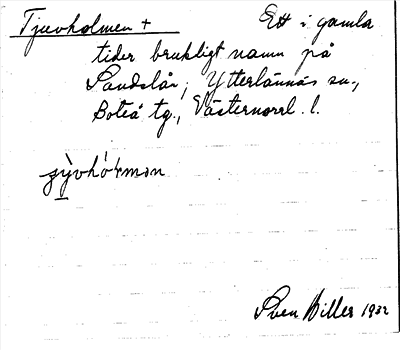 Tjuvholmen + Ett i gamla
tider brukligt namn på
Sandslån, Ytterlännäs sn.,
Boteå tg., Västernorrl. l.
Sven Hiller 1932